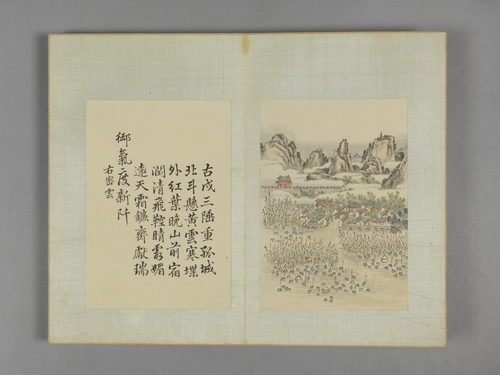 古戍三陲重孤城
北斗懸黄雲寒堞
外紅葉晚山前宿
潤清飛鞚晴雲媚
遠天霜鑣齊獻瑞
御氣度新阡
右密雲